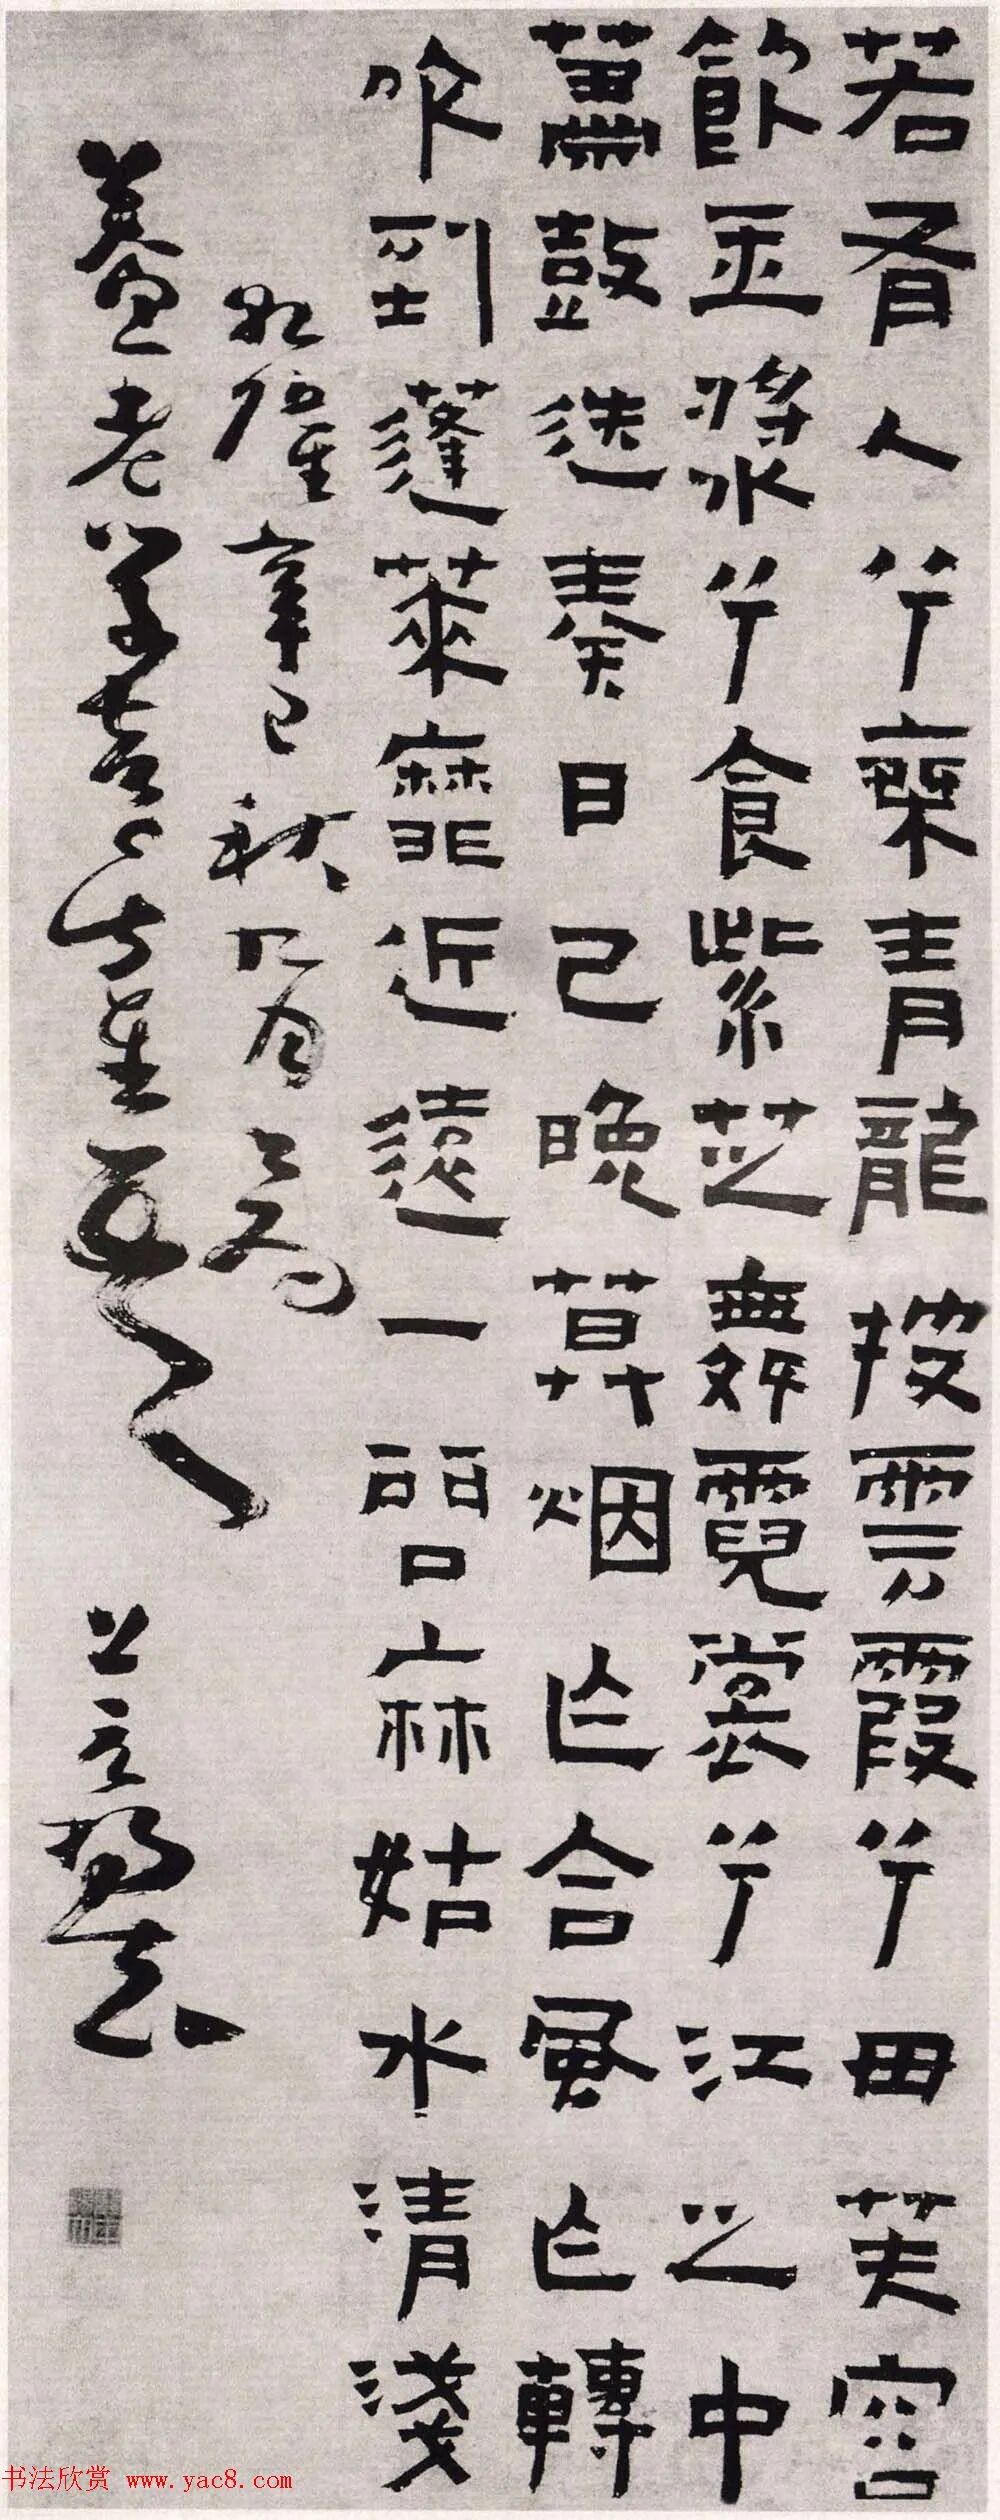 若有人兮乘青龍披雲霞兮芙容
飲玉漿兮食紫芝舞霓裳兮江之中
簫鼓迭奏日已晚暮烟乍合風乍轉
吹到蓬萊靡近遠一麻姑水清淺
辛巳秋九月
老學長先生 上元楊法
书法欣赏 www.yac8.com